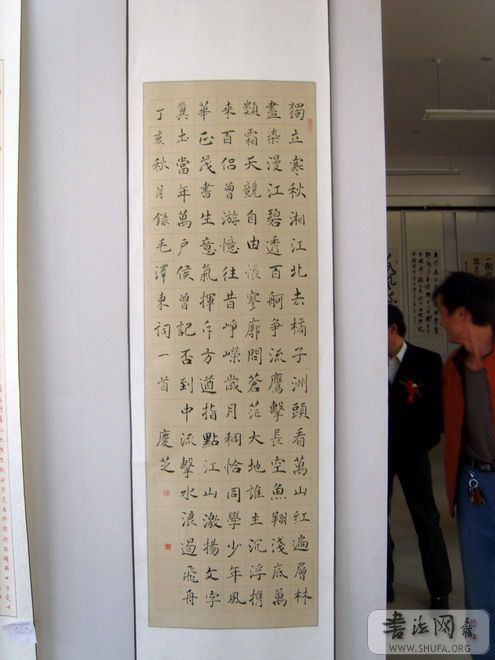 獨立寒秋湘江北去橘子洲頭看萬山紅遍層林
盡染漫江碧透百舸爭流鷹擊長空魚翔淺底萬
類霜天競自由悵寥廓問蒼茫大地誰主沉浮攜
來百侶曾游憶往昔崢嶸歲月稠恰同學少年風
華正茂書生意氣揮斥方遒指點江山激揚文字
糞土當年萬戶侯曾記否到中流擊水浪遏飛舟
丁亥秋月錄毛澤東詞一首 慶芝
书法网
www.SHUFA.ORG